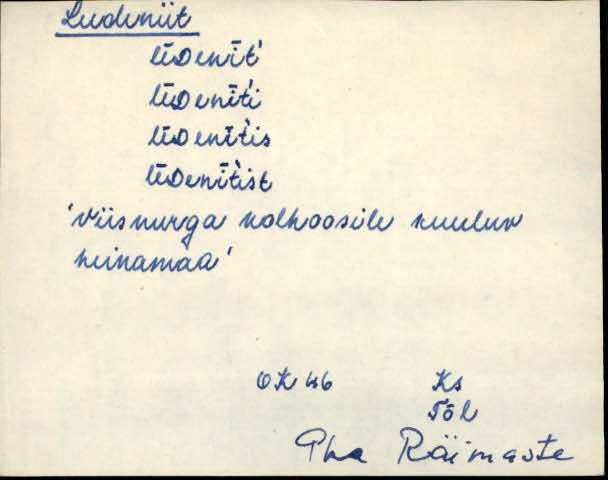 Ludeniit
lūᴅenīt́
lūᴅenīt́i
lūᴅenīt́is
lūᴅenīt́ist
'Viisnurga kolhoosile kuuluv
heinamaa'
Ks
Pha Räimaste